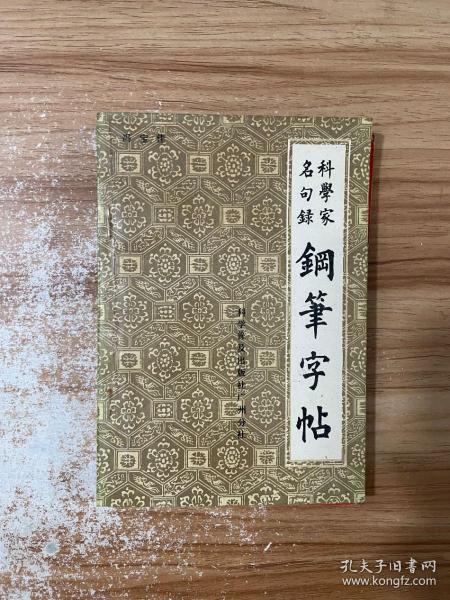 科學家
名句録
鋼筆字帖
科学普及出版社广州分社
孔夫子旧书网
www.kongfz.com